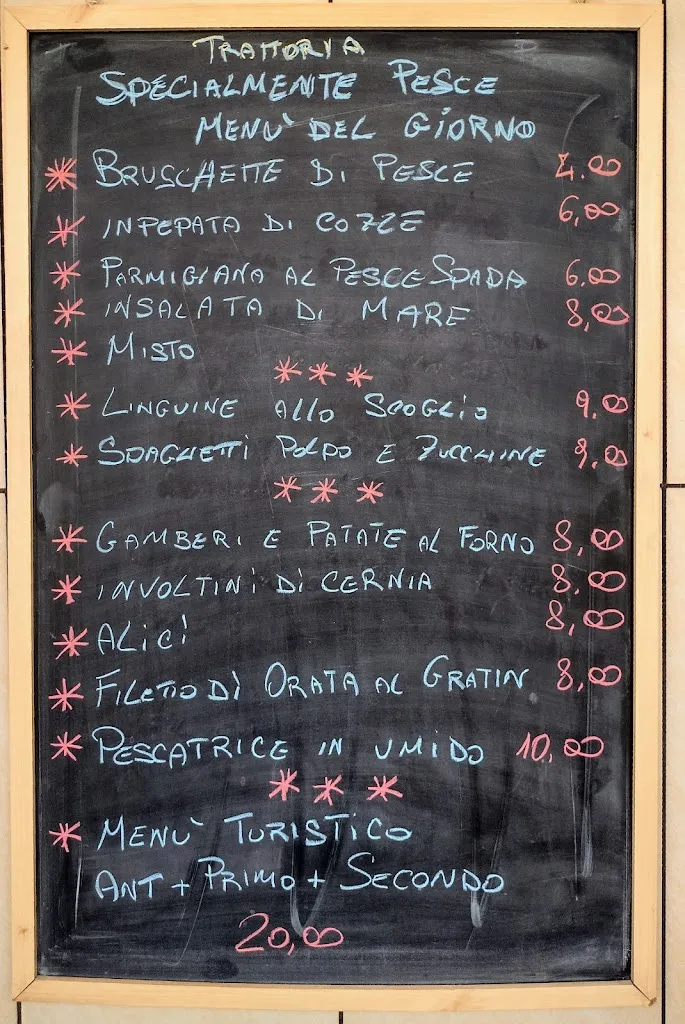 TRATTORIA
SPECIALMENTE PESCE
MENU' DEL GIORNO
* BRUSCHETTE DI PESCE 4.00
* INPEPATA DI COZZE 6,00
* PARMIGIANA AL PESCE SPADA 6.00
* INSALATA DI MARE 8,00
* MISTO
* * *
* LINGUINE ALLO SCOGLIO 9,00
* SPAGHETTI POLPO E ZUCCHINE 9,00
* * *
* GAMBERI E PATATE AL FORNO 8,00
* INVOLTINI DI CERNIA 8.00
* ALICI 8,00
* FILETTO DI ORATA AL GRATIN 8,00
* PESCATRICE IN UMIDO 10,00
* * *
* MENU' TURISTICO
ANT + PRIMO + SECONDO
20,00